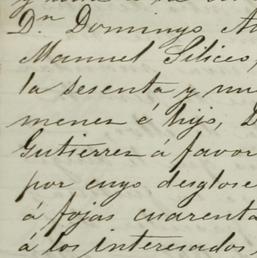 Dⁿ Domingo
Manuel Siliceo,
la sesenta y un
menen é hijo, D
Gutierrez á favor
por cuyo desglose
á fojas cuarenta
á los interesados,